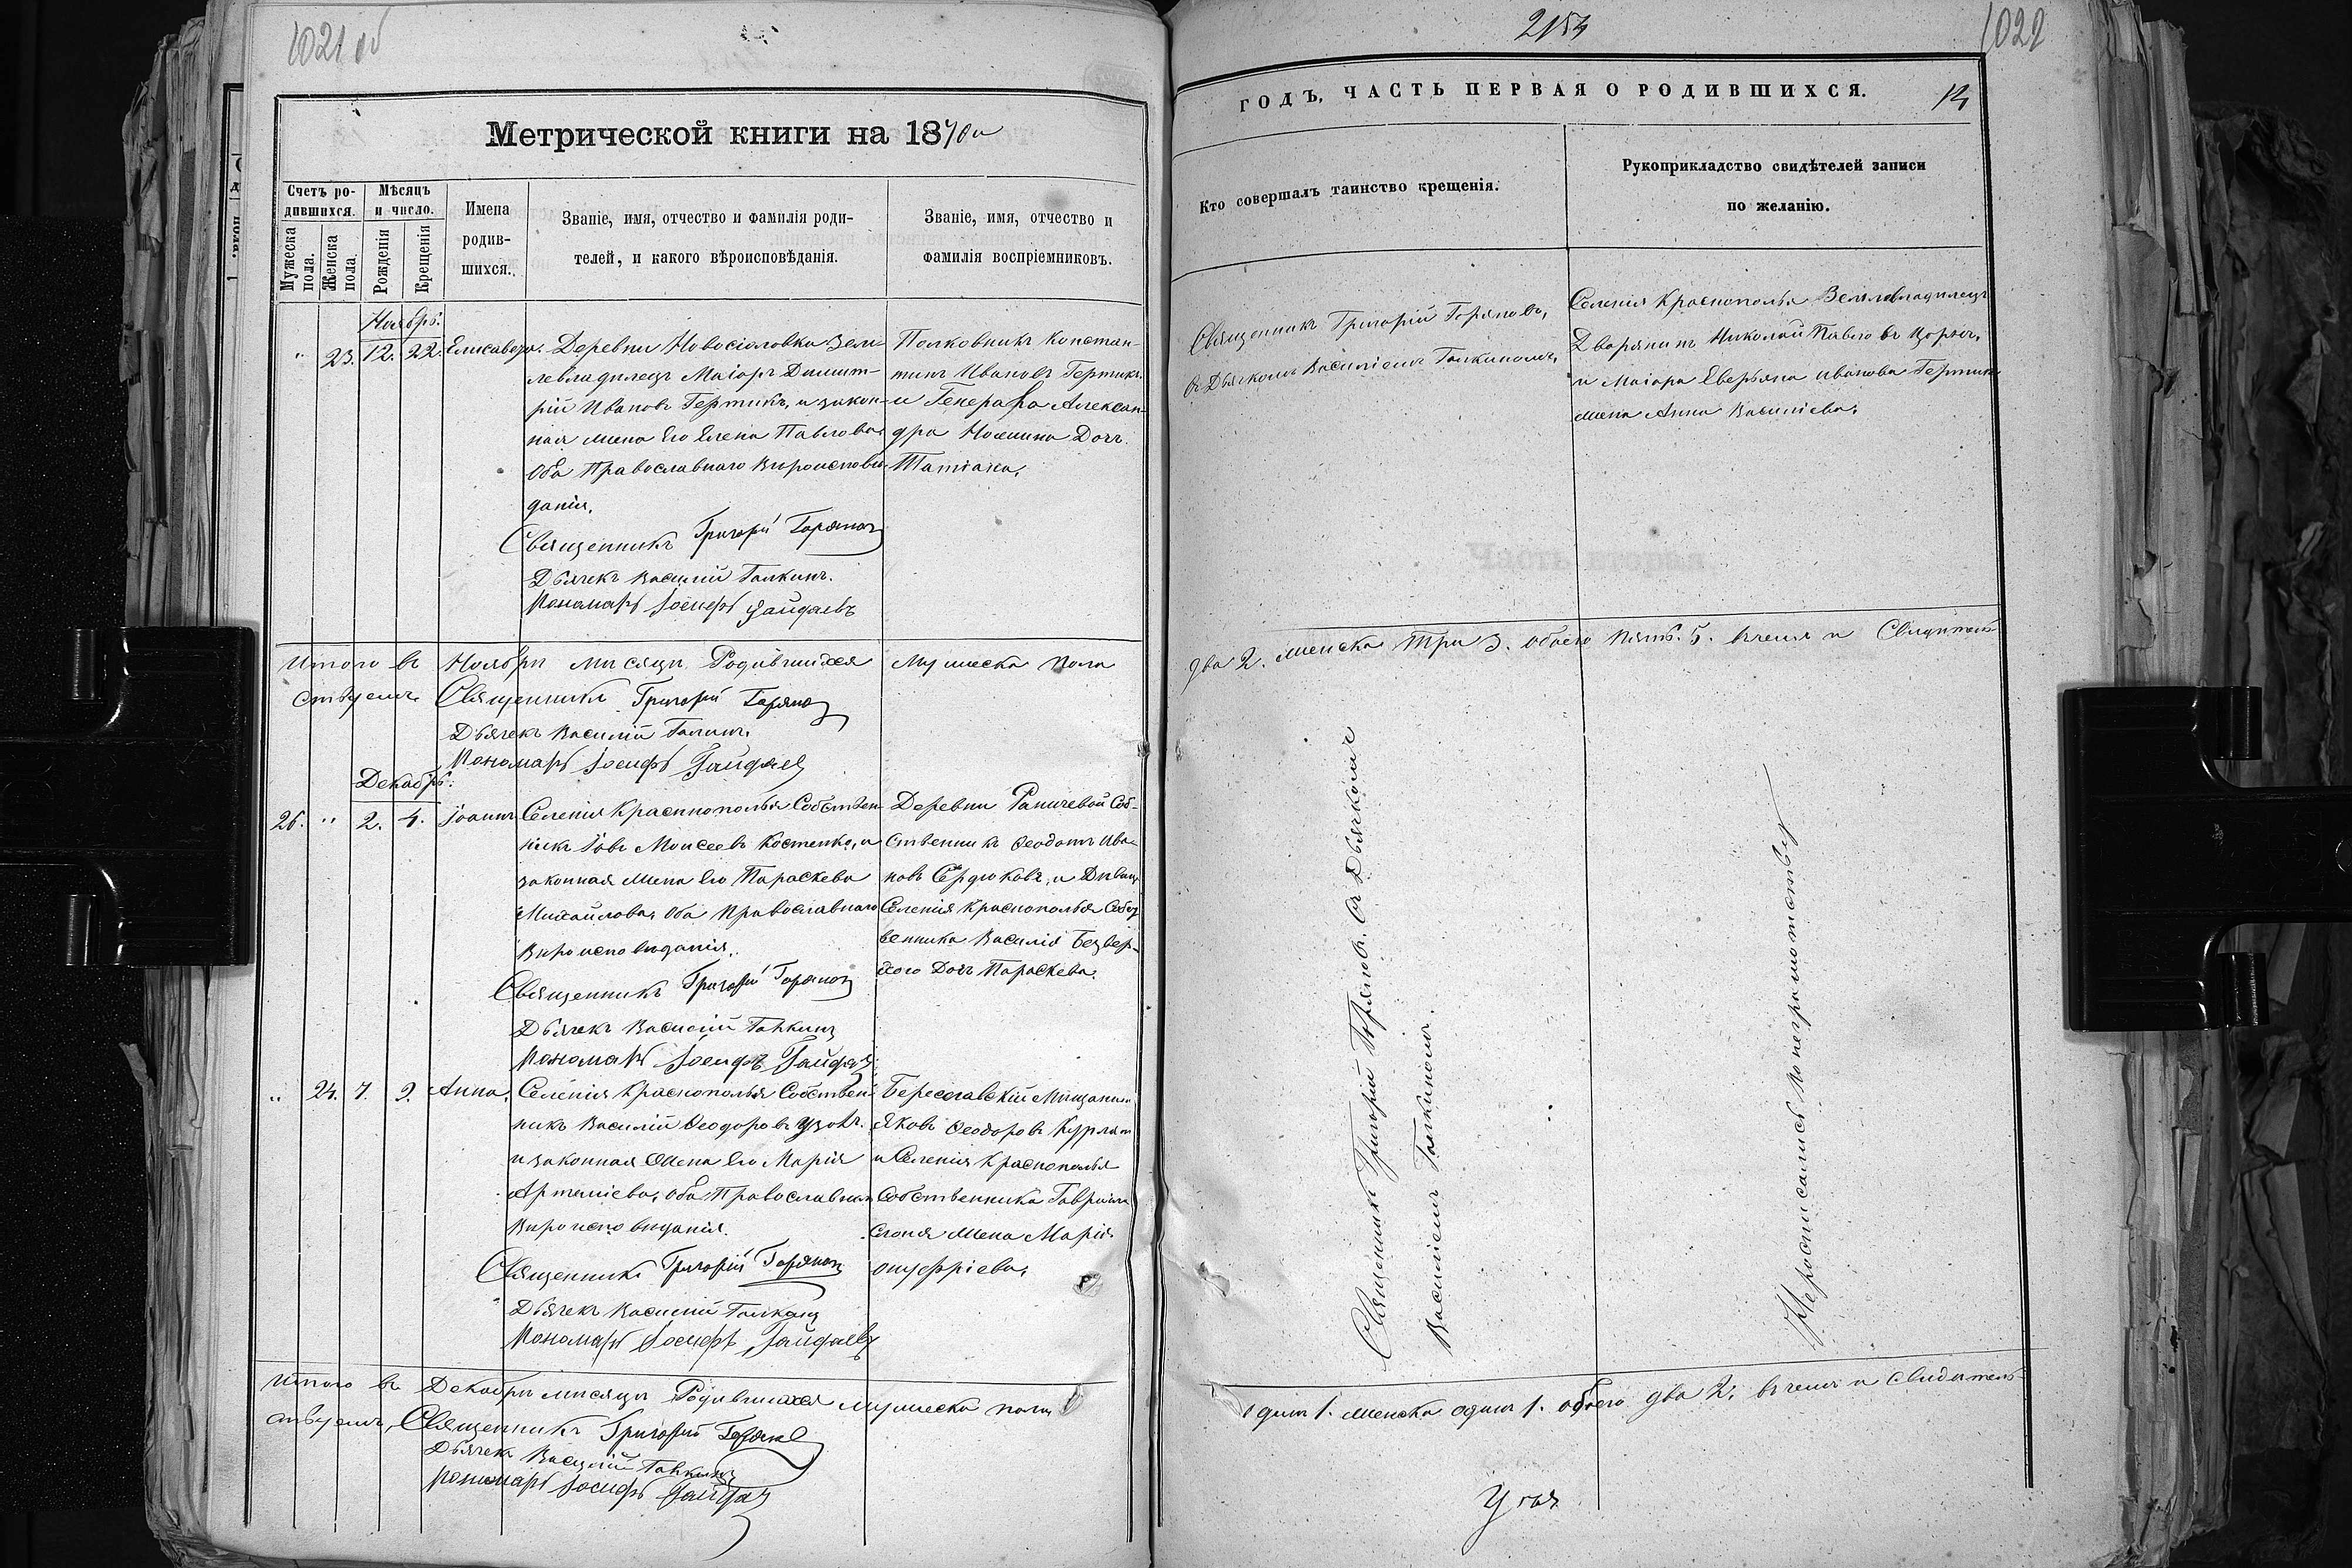 1021 об
Метрической книги на 1870й
Счетъ ро-
дившихся.
Мѣсяцъ
и число.
Мужеска
пола.
Женска
пола.
Рожденія
Крещенія
Имена
родив-
шихся.
Званіе, имя, отчество и фамилія роди-
телей, и какого вѣроисповѣданія.
Званіе, имя, отчество и
фамилія воспріемниковъ.
Ноябрь.
" 23. 12. 22. Елисавета.
Деревни Новосіоловки Земле-
левладѣлецъ Маіоръ Димит-
рій Ивановъ Гертикъ, и закон-
ная жена его Елена Павлова,
оба Православнаго вѣроисповѣ-
данія.
Священникъ Григорій Горяновъ
Дьячекъ Василій Галкинъ.
Пономарь Іосифъ Гайдаевъ
Полковникъ Констан-
тинъ Ивановъ Гертикъ.
и Генерала Алексан-
дра дочь
Татіана.
Итого въ Ноябрѣ мѣсяцѣ Родившихся мужеска пола
ствуемъ Священникъ Григорій Горяновъ
Дьячекъ Василій Галкинъ.
Пономарь Іосифъ Гайдаевъ
Декабрь.
26. " 2. 4. Іоаннъ
Селенія Краснополья Собствен-
никъ Іовъ Моисеевъ Костенко, и
законная жена его Параскева
Михайлова, оба Православнаго
вѣроисповѣданія.
Священникъ Григорій Горяновъ
Дьячекъ Василій Галкинъ
Пономарь Іосифъ Гайдаевъ
Деревни Соб-
ственникъ Феодотъ Ива-
новъ Сердюковъ, и Дѣвица
Селенія Краснополья Собст
венника Василія Безвер-
аго Дочь Параскева.
" 24. 7. 9. Анна.
Селенія Краснополья Собствен-
никъ Василій Феодоровъ
и законная жена его Марія
Артеміева, оба Православнаго
вѣроисповѣданія.
Священникъ Григорій Горяновъ
Дьячекъ Василій Галкинъ
Пономарь Іосифъ Гайдаевъ
Бериславскій Мѣщанинъ
Яковъ Феодоровъ
и Селенія Краснополья
Собственника Гавріила
жена Марія
Онуфріева.
Итого въ Декабрѣ мѣсяцѣ Родившихся мужеска пола
ствуемъ, Священникъ Григорій Горяновъ
Дьячекъ Василій Галкинъ
Пономарь Іосифъ Гайдаевъ
2154
1022
ГОДЪ, ЧАСТЬ ПЕРВАЯ О РОДИВШИХСЯ. 14
Кто совершалъ таинство крещенія.
Рукоприкладство свидѣтелей записи
по желанію.
Священникъ Григорій Горяновъ,
съ Дьячкомъ Василіемъ Галкинымъ.
Селенія Краснополья Землевладѣлецъ
Дворянинъ Николай Павловъ
и Маіора Иванова Гертика
жена Анна Василіева.
два 2. женска три 3. обоего пять. 5. въ чемъ и Свидѣтель-
Священникъ Григорій Горяновъ. съ Дьячкомъ
Василіемъ Галкинымъ.
Нерасписались по неграмотству
одинъ 1. женска одинъ 1. обоего два 2. въ чемъ и Свидѣтель-